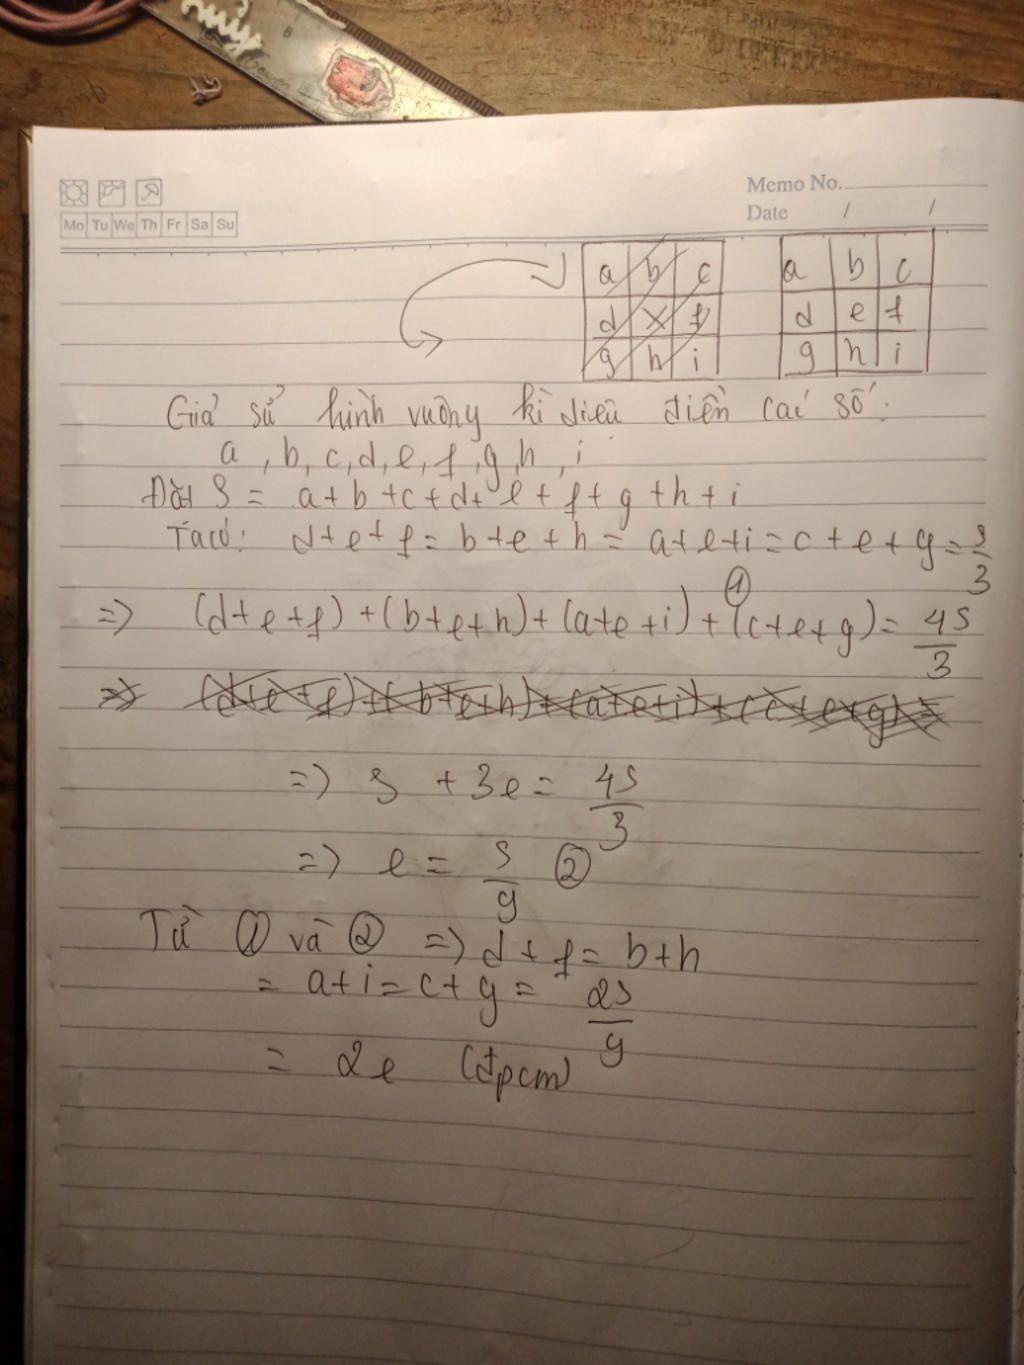 Memo No.
Date / /
Mo Tu We Th Fr Sa Su
a b c
d x f
g h i
a b c
d e f
g h i
Giả sử hình vuông kì diệu điền các số:
a, b, c, d, e, f, g, h, i
Đặt S = a + b + c + d + e + f + g + h + i
Ta có: d + e + f = b + e + h = a + e + i = c + e + g = S/3
①
=> (d + e + f) + (b + e + h) + (a + e + i) + (c + e + g) = 4S/3
=> (d + e + f) + (b + e + h) + (a + e + i) + (c + e + g) =
=> S + 3e = 4S/3
=> e = S/9 ②
Từ ① và ② => d + f = b + h
= a + i = c + g = 2S/9
= 2e (đpcm)